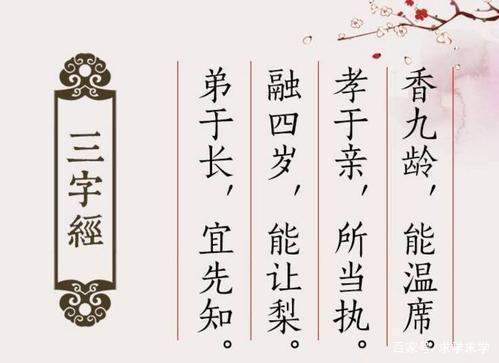 三字經
香九龄，能温席。
孝于亲，所当执。
融四岁，能让梨。
弟于长，宜先知。
百家号/求学未学